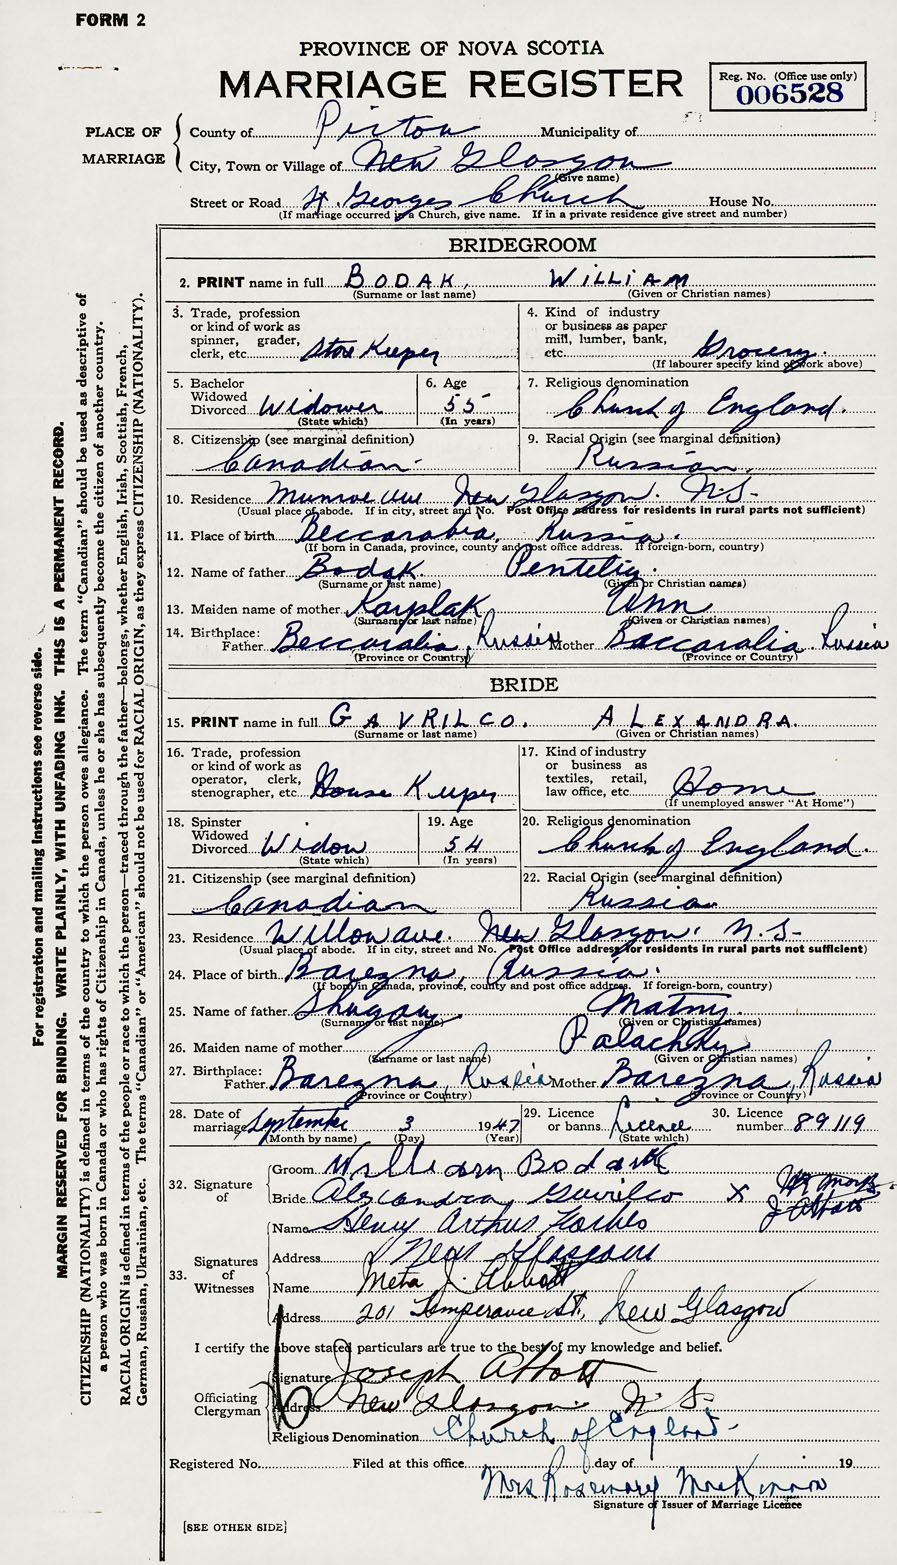 FORM 2
PROVINCE OF NOVA SCOTIA
MARRIAGE REGISTER
Reg. No. (Office use only)
006528
PLACE OF MARRIAGE
County of Pictou Municipality of
City, Town or Village of New Glasgow
(Give name)
Street or Road St. Georges Church House No.
(If marriage occurred in a Church, give name. If in a private residence give street and number)
BRIDEGROOM
2. PRINT name in full BODAK, WILLIAM
(Surname or last name) (Given or Christian names)
3. Trade, profession or kind of work as spinner, grader, clerk, etc. Store Keeper
4. Kind of industry or business as paper mill, lumber, bank, etc. Grocery.
(If labourer specify kind of work above)
5. Bachelor Widowed Divorced Widower
(State which)
6. Age 55
(In years)
7. Religious denomination
Church of England.
8. Citizenship (see marginal definition)
Canadian.
9. Racial Origin (see marginal definition)
Russian.
10. Residence Munroe Ave New Glasgow. N.S.
(Usual place of abode. If in city, street and No. Post Office address for residents in rural parts not sufficient)
11. Place of birth Beccarabia, Russia.
(If born in Canada, province, county and post office address. If foreign-born, country)
12. Name of father Bodak. Penteliy.
(Surname or last name) (Given or Christian names)
13. Maiden name of mother Karplak Ann
(Surname or last name) (Given or Christian names)
14. Birthplace:
Father Beccaralia, Russia Mother Baccaralia Russia
(Province or Country) (Province or Country)
BRIDE
15. PRINT name in full GAVRILCO. ALEXANDRA.
(Surname or last name) (Given or Christian names)
16. Trade, profession or kind of work as operator, clerk, stenographer, etc. House Keeper
17. Kind of industry or business as textiles, retail, law office, etc. Home
(If unemployed answer "At Home")
18. Spinster Widowed Divorced Widow
(State which)
19. Age 54
(In years)
20. Religious denomination
Church of England.
21. Citizenship (see marginal definition)
Canadian
22. Racial Origin (see marginal definition)
Russian
23. Residence Willow ave. New Glasgow. N.S.
(Usual place of abode. If in city, street and No. Post Office address for residents in rural parts not sufficient)
24. Place of birth Barezna, Russia.
(If born in Canada, province, county and post office address. If foreign-born, country)
25. Name of father Shugay Matny.
(Surname or last name) (Given or Christian names)
26. Maiden name of mother Palachky
(Surname or last name) (Given or Christian names)
27. Birthplace:
Father Barezna, Russia Mother Barezna, Russia
(Province or Country) (Province or Country)
28. Date of marriage September 3 1947
(Month by name) (Day) (Year)
29. Licence or banns Licence
(State which)
30. Licence number 89119
32. Signature of
Groom William Bodark
Bride Alexandra Gavrilco X
J Abbott
33. Signatures of Witnesses
Name Henry Arthur Forbes
Address New Glasgow
Name Meta J. Abbott
Address 201 Temperance St., New Glasgow
I certify the above stated particulars are true to the best of my knowledge and belief.
Officiating Clergyman
Signature Joseph Abbott
Address New Glasgow N.S.
Religious Denomination Church of England
Registered No. Filed at this office day of 19
Mrs Rosemary MacKinnon
Signature of Issuer of Marriage Licence
[SEE OTHER SIDE]
For registration and mailing instructions see reverse side.
MARGIN RESERVED FOR BINDING. WRITE PLAINLY, WITH UNFADING INK. THIS IS A PERMANENT RECORD.
CITIZENSHIP (NATIONALITY) is defined in terms of the country to which the person owes allegiance. The term "Canadian" should be used as descriptive of
a person who was born in Canada or who has rights of Citizenship in Canada, unless he or she has subsequently become the citizen of another country.
RACIAL ORIGIN is defined in terms of the people or race to which the person—traced through the father—belongs, whether English, Irish, Scottish, French,
German, Russian, Ukrainian, etc. The terms "Canadian" or "American" should not be used for RACIAL ORIGIN, as they express CITIZENSHIP (NATIONALITY).